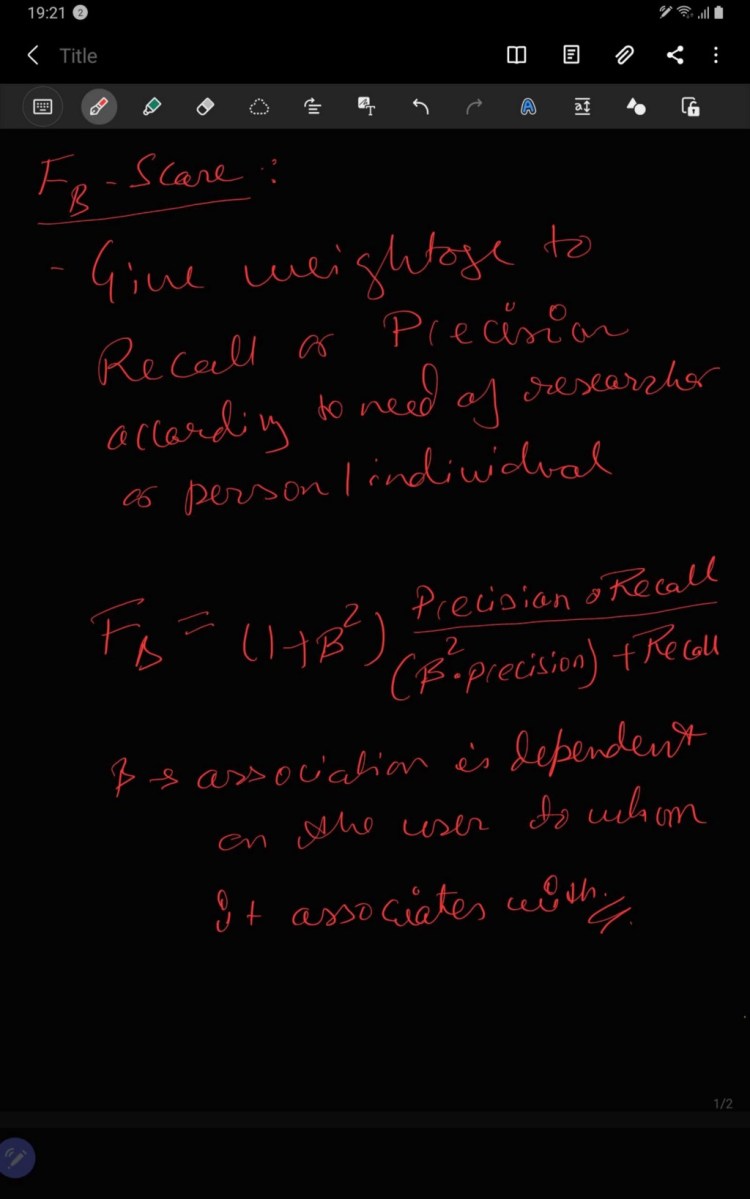 19:21 2
Title
F_B - Score :
- Give weightage to
Recall or Precision
according to need of researcher
or person / individual
F_B = (1+B²) Precision • Recall / (B² • precision) + Recall
B → association is dependent
on the user to whom
it associates with.
1/2